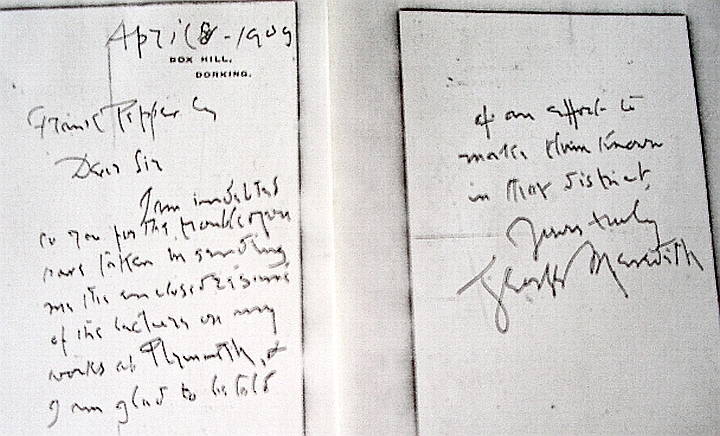 April 8 - 1909
BOX HILL,
DORKING.
Frank Pepper Esq
Dear Sir
I am indebted
to you for the trouble you
have taken in sending
me the enclosed
of the lecture on my
works at Plymouth, &
I am glad to be told
of an effort to
make them known
in that district,
Yours truly
George Meredith